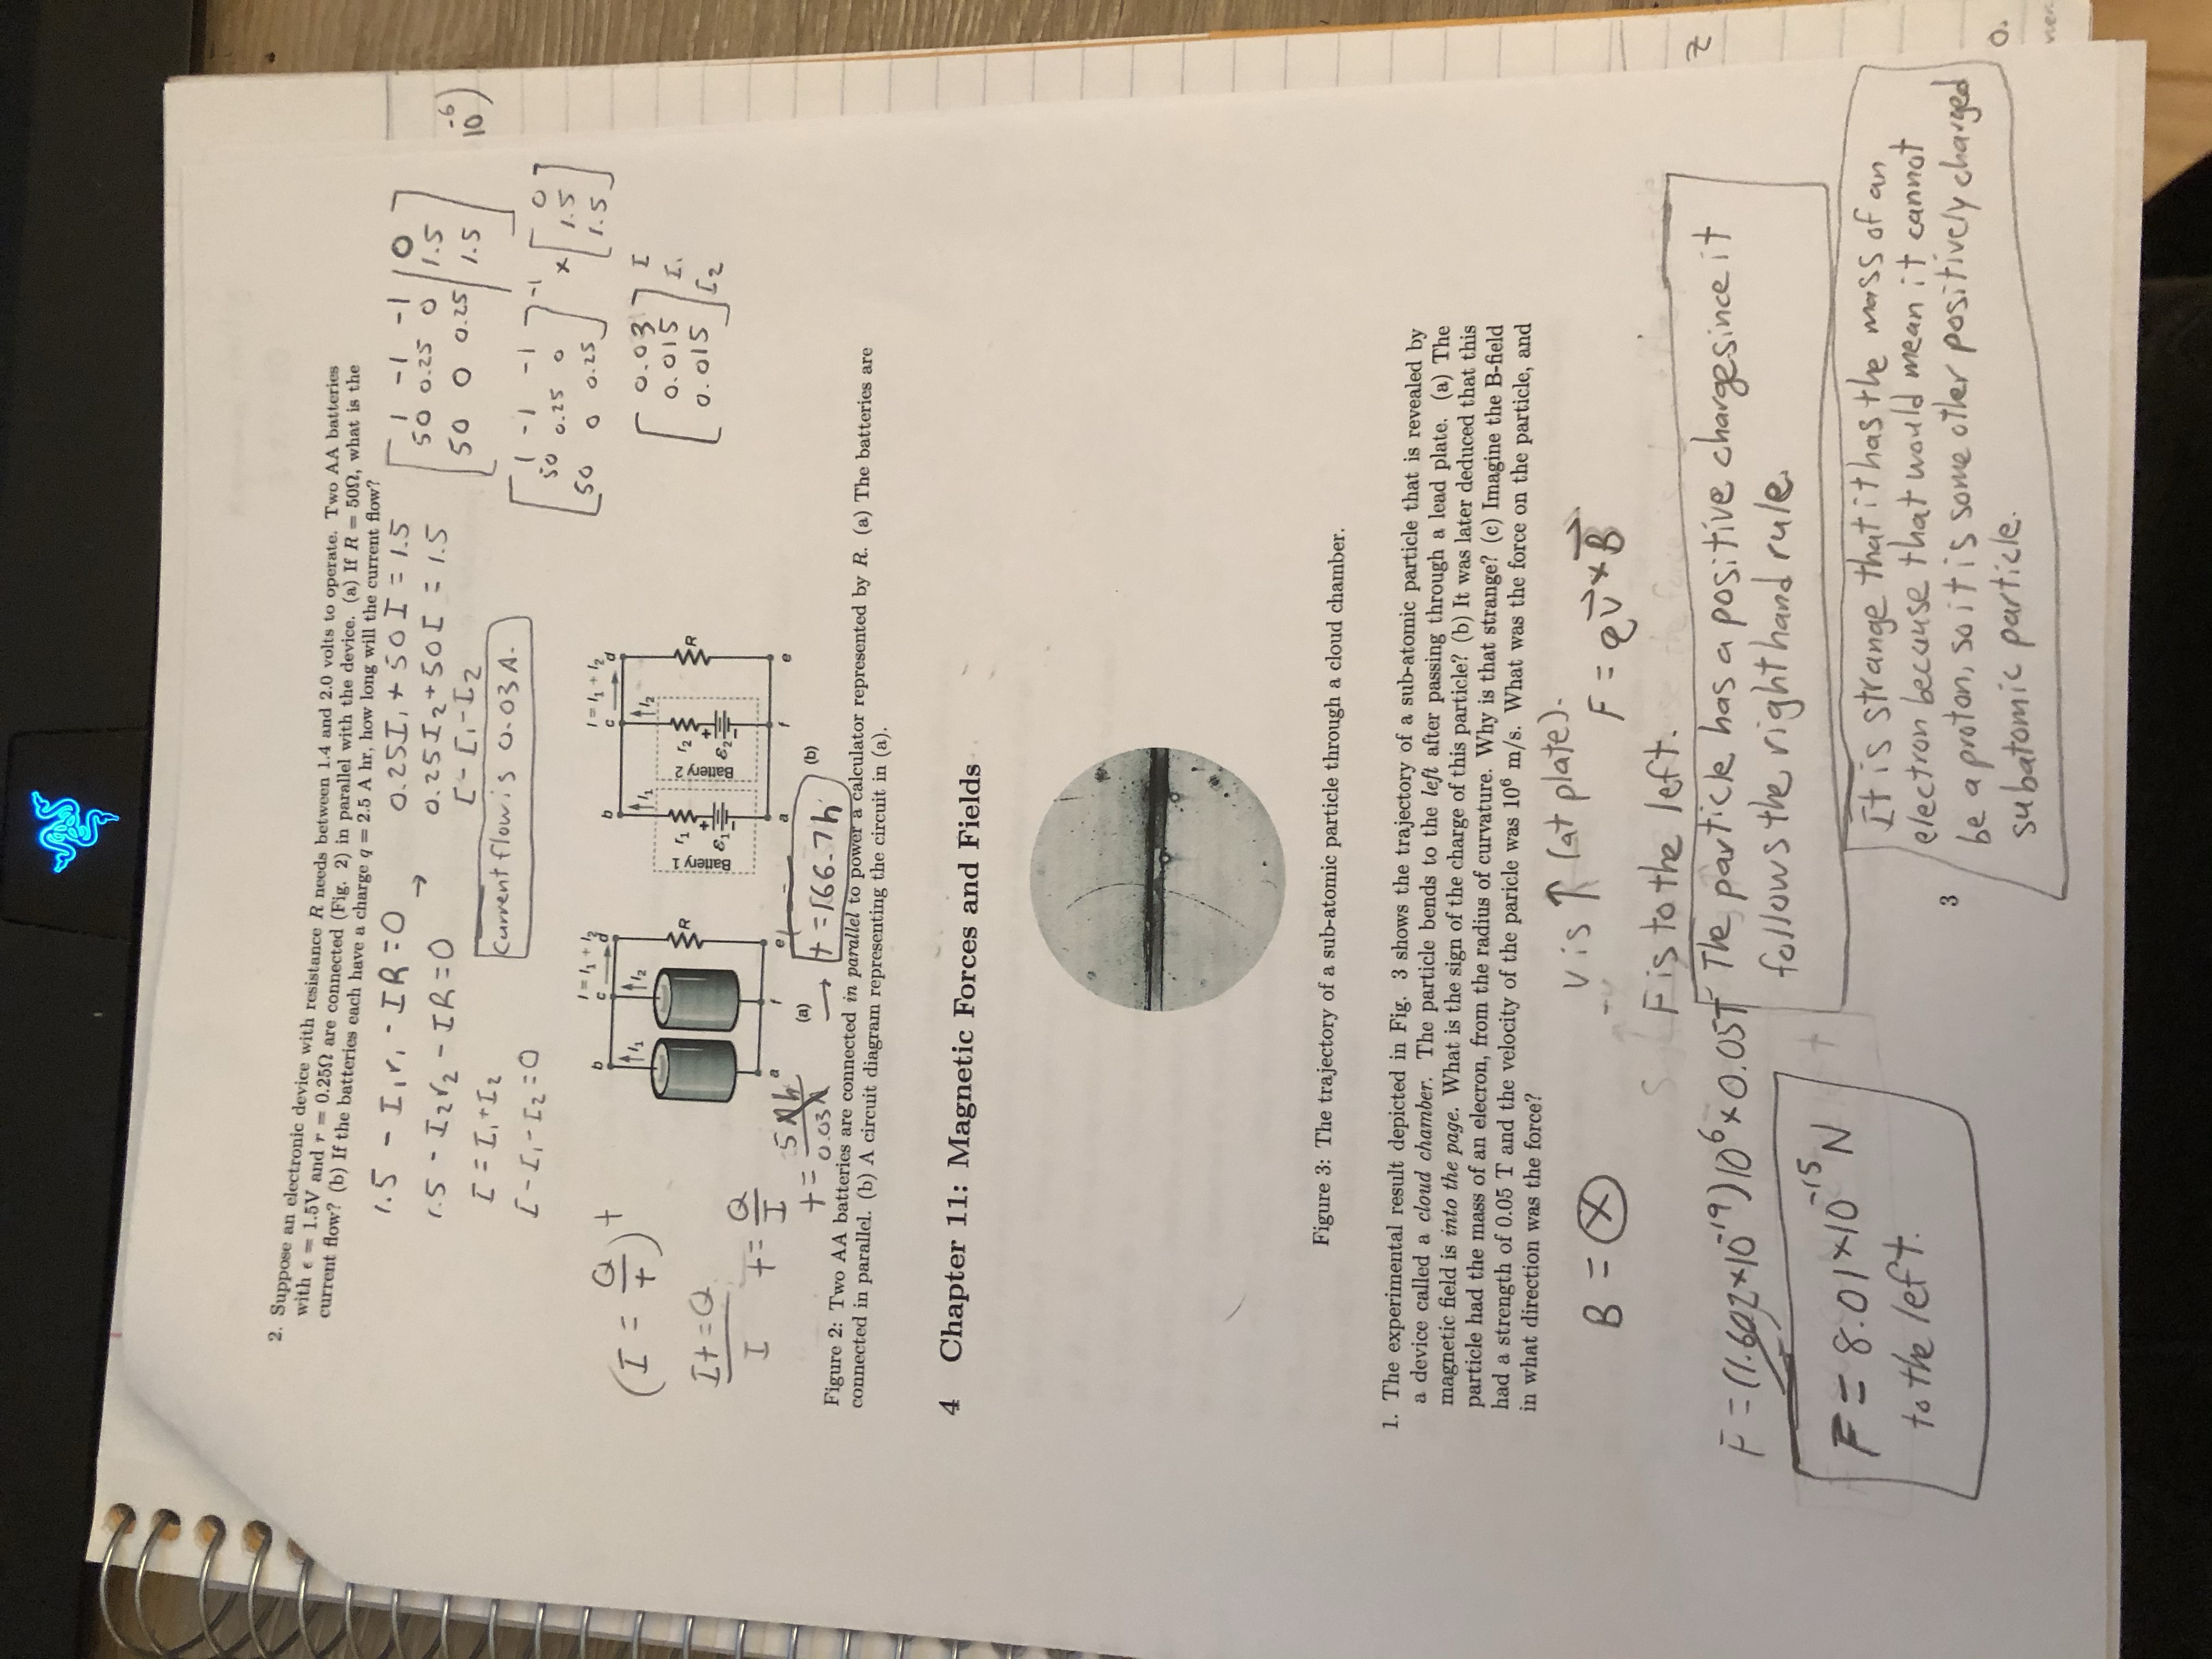 2. Suppose an electronic device with resistance R needs between 1.4 and 2.0 volts to operate. Two AA batteries
with ϵ = 1.5V and r = 0.25Ω are connected (Fig. 2) in parallel with the device. (a) If R = 50Ω, what is the
current flow? (b) If the batteries each have a charge q = 2.5 A hr, how long will the current flow?
1.5 - I₁r₁ - IR = 0
1.5 - I₂r₂ - IR = 0
I = I₁ + I₂
I - I₁ - I₂ = 0
→
0.25I₁ + 50I = 1.5
0.25I₂ + 50I = 1.5
I - I₁ - I₂
Current flow is 0.03 A.
1 -1 -1 | 0
50 0.25 0 | 1.5
50 0 0.25 | 1.5
10⁻⁶)
[1 -1 -1]⁻¹ × [0]
50 0.25 0 1.5
50 0 0.25 1.5
0.03 I
0.015 I₁
0.015 I₂
(I = Q/t) t
It = Q
I
t = Q/I
t = 5Ah/0.03A → t = 166.7h
I = I₁ + I₂
b c d
I₁ I₂
R
a f e
(a)
I = I₁ + I₂
b c d
I₁ I₂
Battery 1 r₁ Battery 2 r₂ R
+ ε₁ - + ε₂ -
a f e
(b)
Figure 2: Two AA batteries are connected in parallel to power a calculator represented by R. (a) The batteries are
connected in parallel. (b) A circuit diagram representing the circuit in (a).
4 Chapter 11: Magnetic Forces and Fields
Figure 3: The trajectory of a sub-atomic particle through a cloud chamber.
1. The experimental result depicted in Fig. 3 shows the trajectory of a sub-atomic particle that is revealed by
a device called a cloud chamber. The particle bends to the left after passing through a lead plate. (a) The
magnetic field is into the page. What is the sign of the charge of this particle? (b) It was later deduced that this
particle had the mass of an elecron, from the radius of curvature. Why is that strange? (c) Imagine the B-field
had a strength of 0.05 T and the velocity of the paricle was 10⁶ m/s. What was the force on the particle, and
in what direction was the force?
B = ⊗
v is ↑ (at plate).
F = qv⃗ × B⃗
F is to the left.
F = (1.602×10⁻¹⁹)10⁶ × 0.05T
The particle has a positive charge since it
follows the right hand rule.
F = 8.01×10⁻¹⁵ N
to the left.
It is strange that it has the mass of an
electron because that would mean it cannot
be a proton, so it is some other positively charged
subatomic particle.
3
z
0.